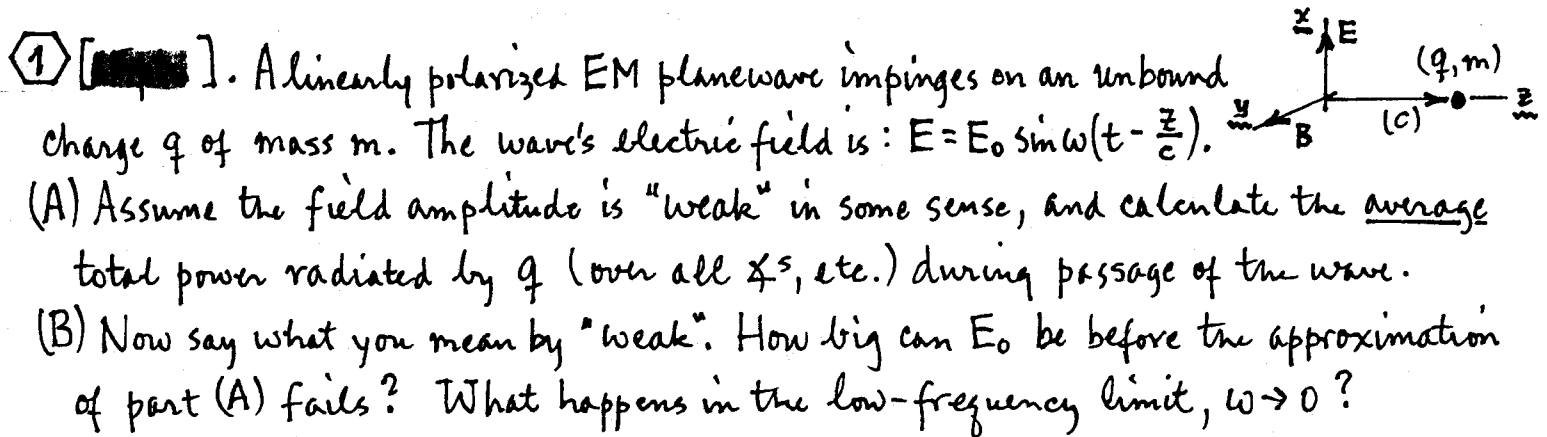 ① [ ]. A linearly polarized EM planewave impinges on an unbound
charge q of mass m. The wave's electric field is : E = E₀ sin ω(t - z/c).
x E (q,m) z (c) y B
(A) Assume the field amplitude is "weak" in some sense, and calculate the average
total power radiated by q (over all ∡s, etc.) during passage of the wave.
(B) Now say what you mean by "weak". How big can E₀ be before the approximation
of part (A) fails? What happens in the low-frequency limit, ω→0 ?